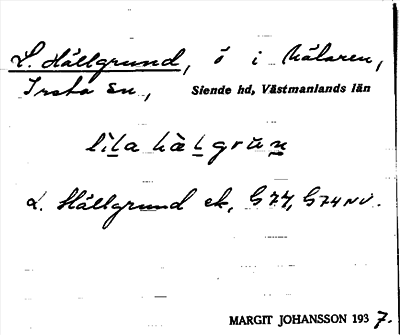 L. Hällgrund, ö i Mälaren,
Irsta sn, Siende hd, Västmanlands län
lìla hàlgrùn
L. Hällgrund ek, G 77, G 74 NV.
MARGIT JOHANSSON 1937.